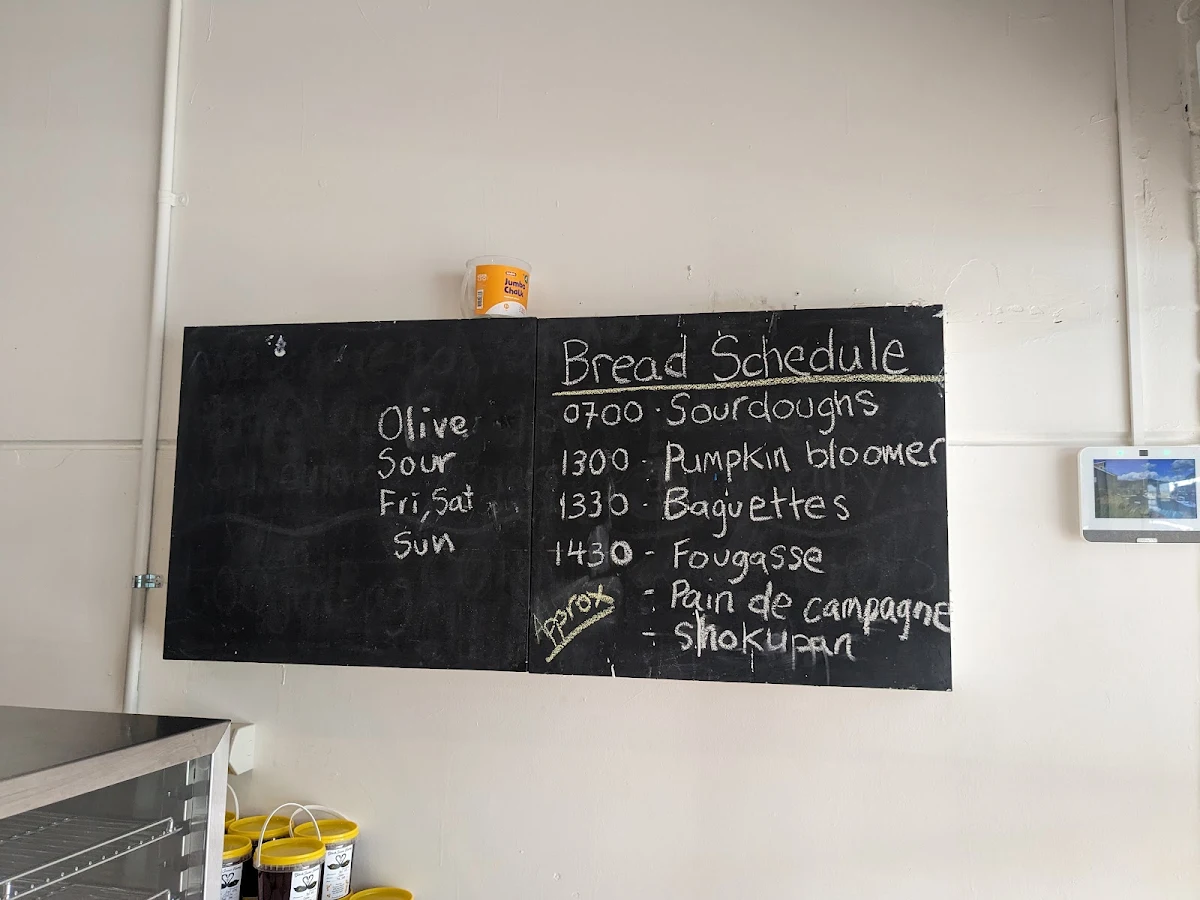 Jumbo
Chalk
Olive
Sour
Fri, Sat
Sun
Bread Schedule
0700 · Sourdoughs
1300 - Pumpkin bloomer
1330 - Baguettes
1430 - Fougasse
Approx
- Pain de campagne
- Shokupan